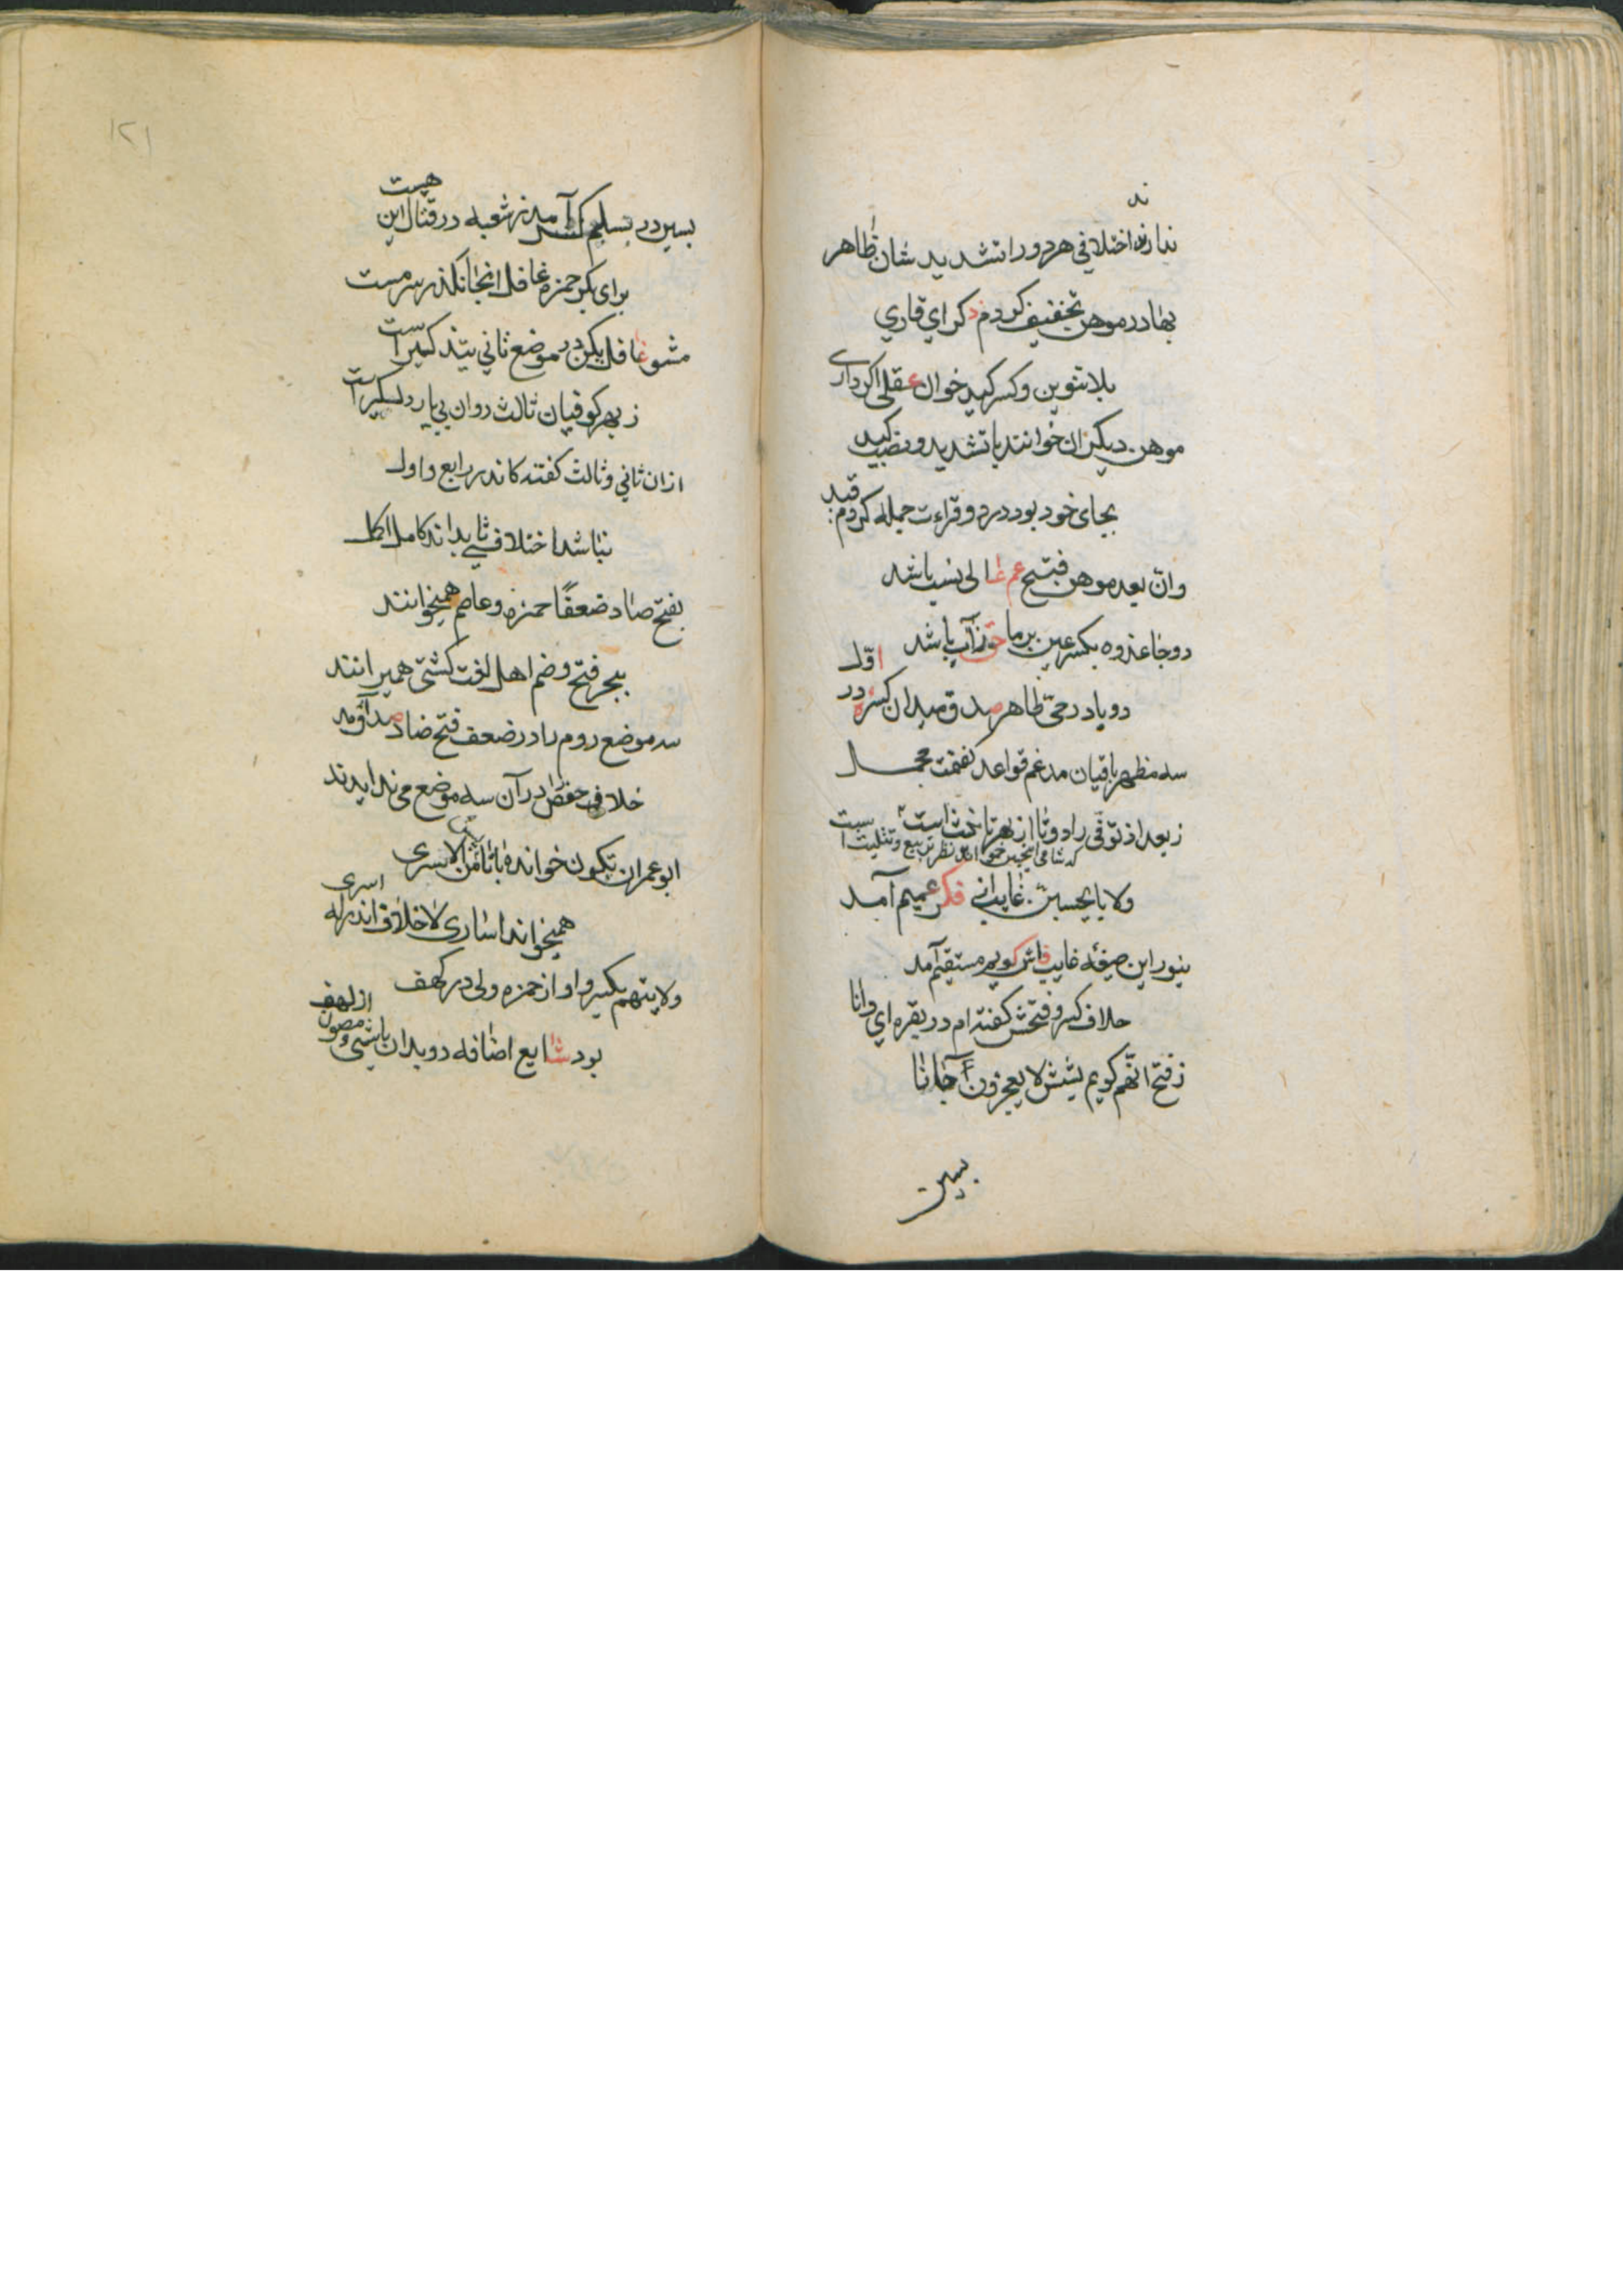 ند
ندارند اختلافی هر دو را تشدید شان ظاهر
بها در موهن تخفیف کردم ذکر ای قاری
بلا تنوین و کسر کید خوان عقلی اگر داری
موهن دیگران خوانند با تشدید و نصب کید
بجای خود بود در دو قراءت جمله کردم قید
وان بعد موهن فتح عم غالی نسب باشد
دو جا عدوه بکسر عین بر ما حق زآب باشد
دو یا در حی ظاهر صدق میدان کسره در اول
سه مظهر باقیان مدغم قواعد گفتمت مجمل
ز بعد از توفی را دو تا از بهر تانیث است
که شامی اینچنین خواند نظر تربیع و تثلیث است
ولا یا یحسبن غایب انی فکر عمیم آمد
بنور این صیغه غایب فاش گویم مستقیم آمد
خلاف کسر و فتحش گفته ام در بقره ای دانا
ز فتح انهم گویم بشش لا یعجزون آنجا
بسین
۱۲۱
بسین در بسلم کسر آمد ز شعبه در قتال این هست
برای بکر حمزه غافل انجا نگذر سرمست
مشو غافل یکن در موضع ثانی بتذکیر است
ز بهر کوفیان ثالث روان بی یار دلگیر است
ازان ثانی و ثالث گفتند کاندر رابع و اول
نباشد اختلافی تا بداند کامل اکمل
بفتح ضاد ضعفًا حمزه و عاصم همیخوانند
ببحر فتح و ضم اهل لغت کشتی همیرانند
سه موضع روم را در ضعف فتح ضاد
خلاف حفص در آن سه موضع می
ابو عمران تکون خوانده با تا من الاسری
همیخواند اساری لا خلاف اندر له اسری
ولایتهم بکسر واو از حمزه ولی در کهف
بود شایع اضافه دو بدان باشی مصون از لهف